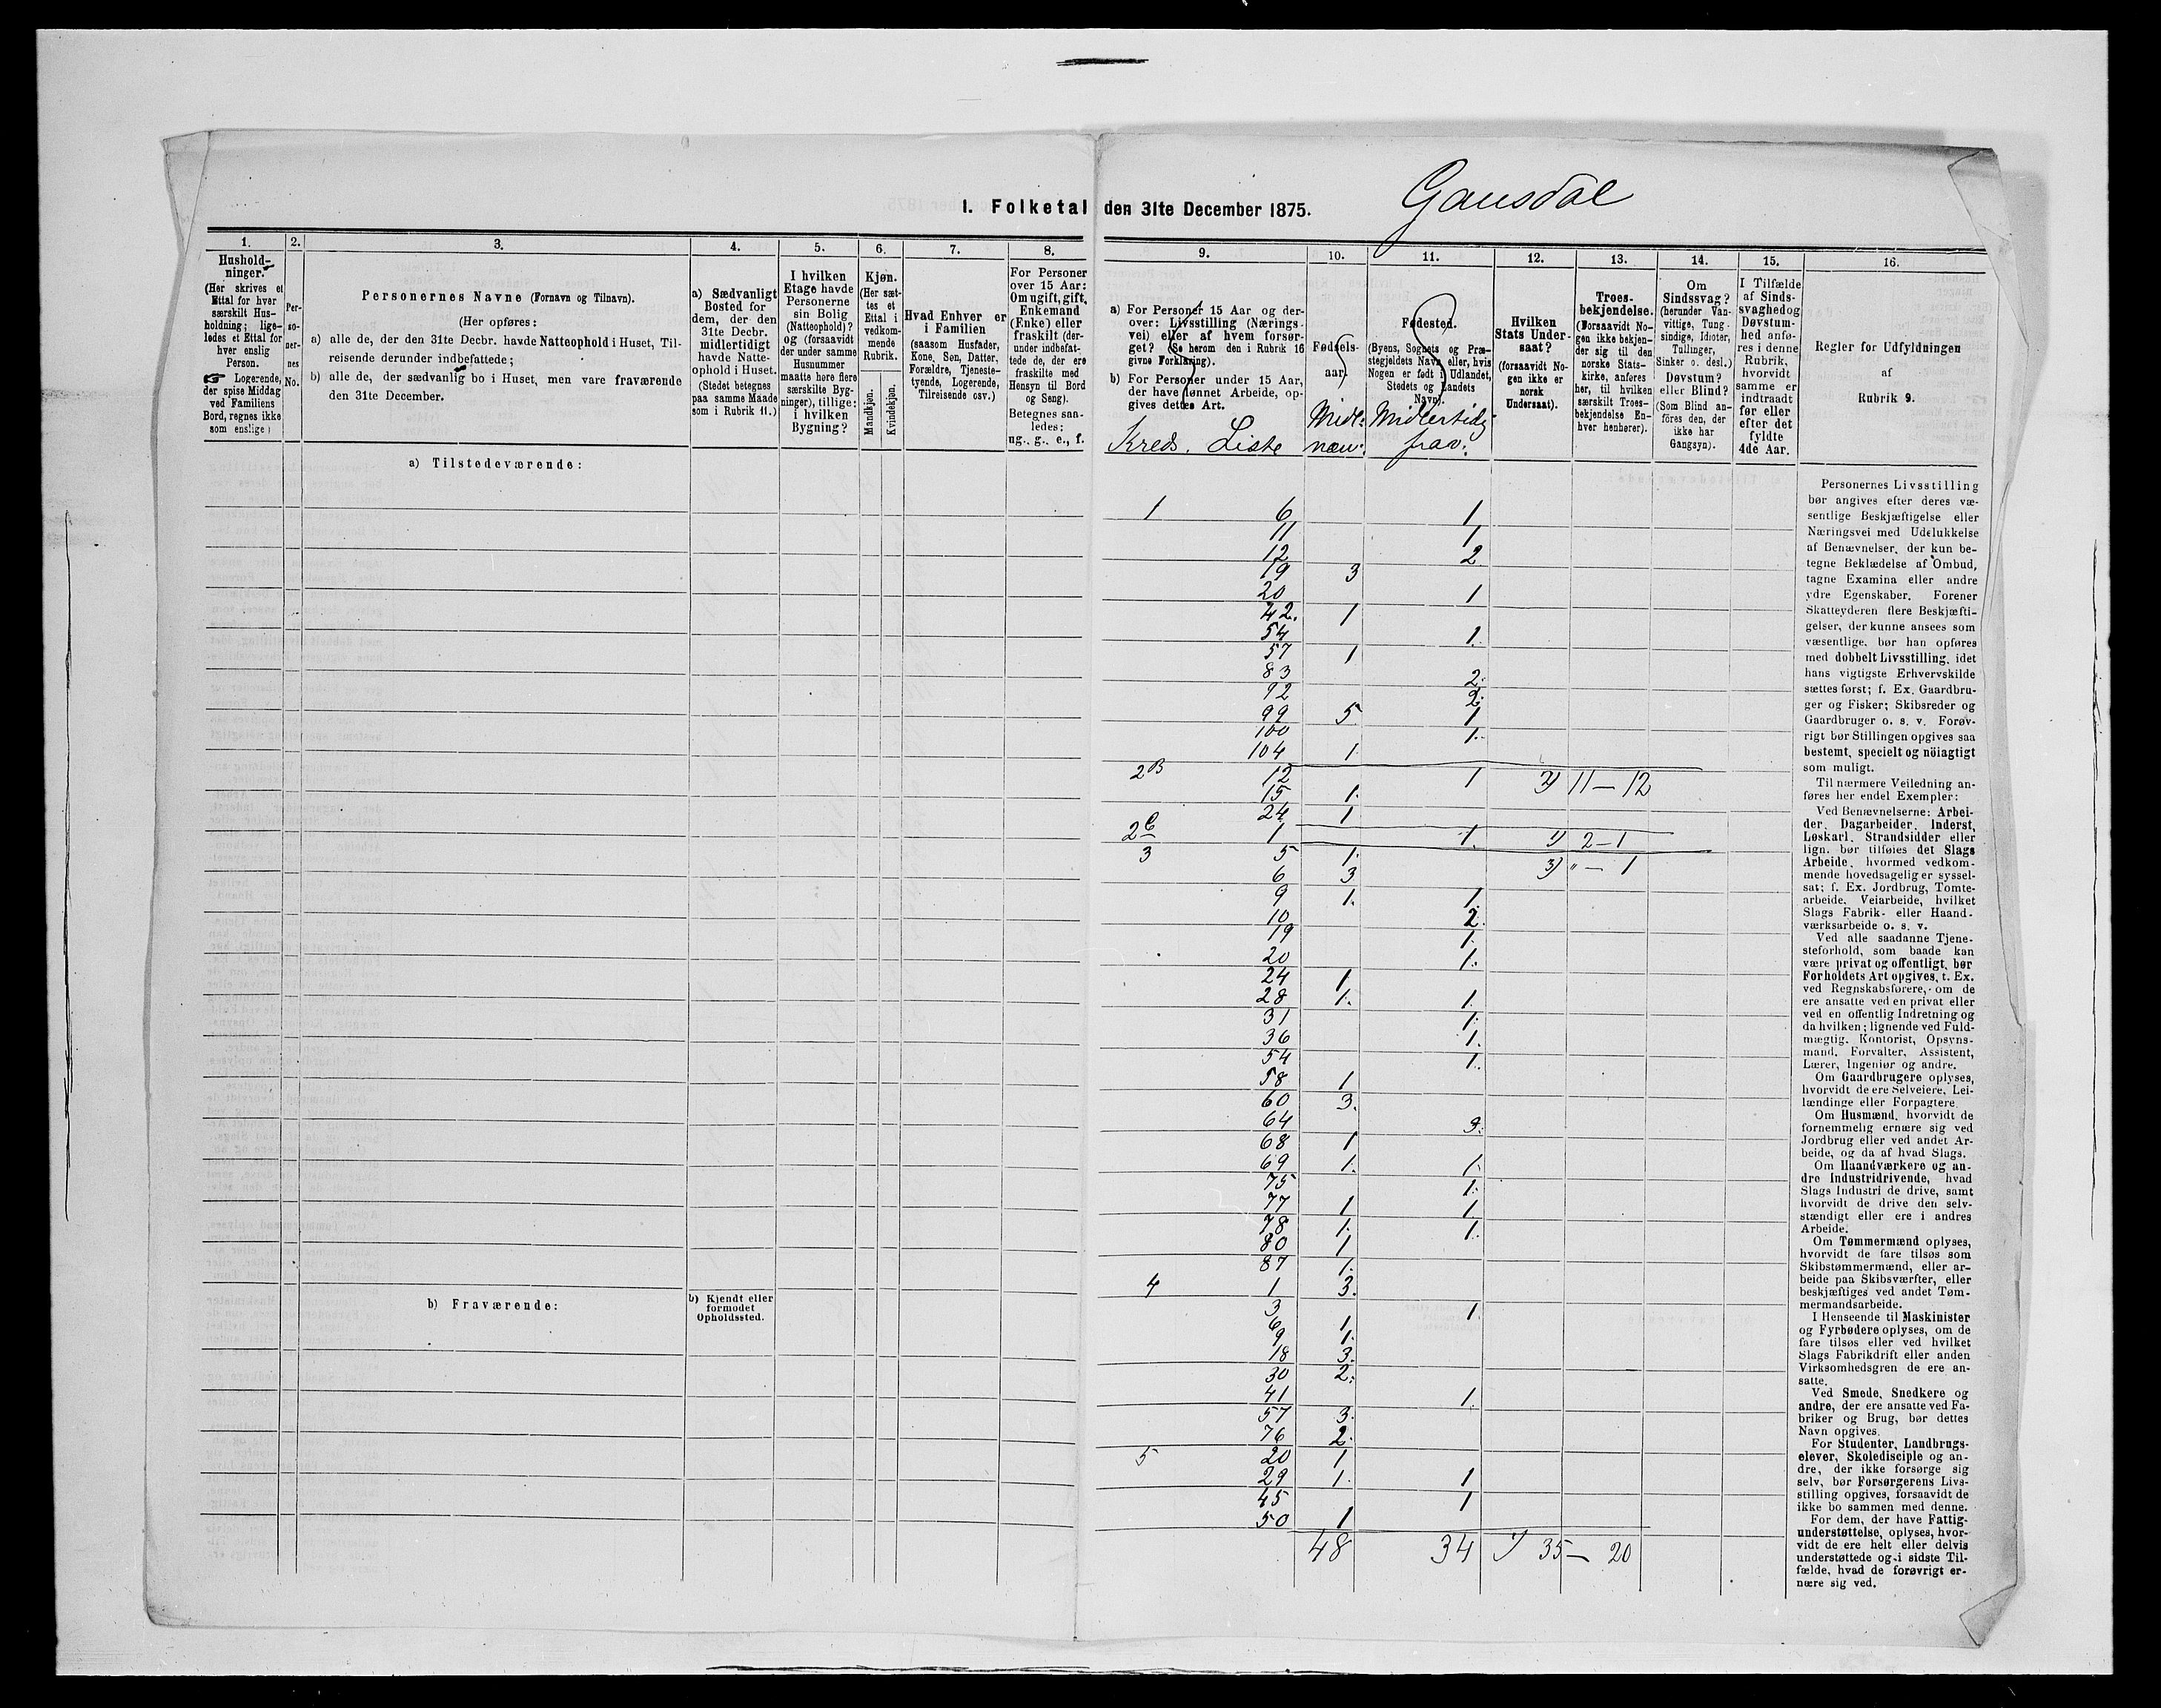 Gausdal
I. Folketal den 31te December 1875.
1.
Hushold-
ninger.
(Her skrives et
Ettal for hver
særskilt Hus-
holdning; lige-
ledes et Ettal for
hver enslig
Person.
☞ Logerende,
der spise Middag
ved Familiens
Bord, regnes ikke
som enslige)
2.
Per-
so-
ner-
nes
No.
3.
Personernes Navne (Fornavn og Tilnavn).
(Her opføres:
a) alle de, der den 31te Decbr. havde Natteophold i Huset, Til-
reisende derunder indbefattede;
b) alle de, der sædvanlig bo i Huset, men vare fraværende
den 31te December.
4.
a) Sædvanligt
Bosted for
dem, der den
31te Decbr.
midlertidigt
havde Natte-
ophold i Huset.
(Stedet betegnes
paa samme Maade
som i Rubrik 11.)
5.
I hvilken
Etage havde
Personerne
sin Bolig
(Natteophold)?
og (forsaavidt
der under samme
Husnummer
maatte høre flere
særskilte Byg-
ninger), tillige:
i hvilken
Bygning?
6.
Kjøn.
(Her sæt-
tes et
Ettal i
vedkom-
mende
Rubrik.
Mandkjøn.
Kvindekjøn.
7.
Hvad Enhver er
i Familien
(saasom Husfader,
Kone, Søn, Datter,
Forældre, Tjeneste-
tyende, Logerende,
Tilreisende osv.)
8.
For Personer
over 15 Aar:
Om ugift, gift,
Enkemand
(Enke) eller
fraskilt (der-
under indbefat-
tede de, der ere
fraskilte med
Hensyn til Bord
og Seng).
Betegnes saa-
ledes:
ug., g., e., f.
9.
a) For Personer 15 Aar og der-
over: Livsstilling (Nærings-
vei) eller af hvem forsør-
get? (Se herom den i Rubrik 16
givne Forklaring).
b) For Personer under 15 Aar,
der have lønnet Arbeide, op-
gives dettes Art.
Kreds. Liste
10.
Fødsels-
aar.
Midl:
nær:
11.
Fødested.
(Byens, Sognets og Præ-
stegjeldets Navn eller, hvis
Nogen er født i Udlandet,
Stedets og Landets
Navn).
Midlertidig
frav:
12.
Hvilken
Stats Under-
saat?
(forsaavidt No-
gen ikke er
norsk
Undersaat).
13.
Troes-
bekjendelse.
(Forsaavidt No-
gen ikke bekjen-
der sig til den
norske Stats-
kirke, anføres
her, til hvilken
særskilt Troes-
bekjendelse En-
hver henhører).
14.
Om
Sindssvag?
(herunder Van-
vittige, Tung-
sindige, Idioter,
Tullinger,
Sinker o. desl.)
Døvstum?
eller Blind?
(Som Blind an-
føres den, der
ikke har
Gangsyn).
15.
I Tilfælde
af Sinds-
svaghed og
Døvstum-
hed anfø-
res i denne
Rubrik,
hvorvidt
samme er
indtraadt
før eller
efter det
fyldte
4de Aar.
16.
Regler for Udfyldningen
af
Rubrik 9.
a) Tilstedeværende:
1 6 1
11 1
12 2
19 3
20 1
42. 1
54 1.
57 1
83 2.
92 2.
99 5 1
100 1.
104 1
2B 12 1 2) 11 — 12
15 1.
24 1
2C 1 1. 2) 2 — 1
3 5 1. 3) " — 1
6 3
9 1. 1.
10 2
19 1.
20 1.
24 1
28 1. 1.
31 1.
36 1.
54 1.
58 1
60 3.
64 3.
68 1
69 1. 1.
75 1.
77 1 1
78 1. 1.
80 1
87 1.
4 1 3.
3 1.
6 1
9 1.
18 3.
30 2.
41 1.
57 3.
76 2.
5 20 1
29 1. 1
45 1
50 1
48 34 1) 35 — 20
b) Fraværende:
b) Kjendt eller
formodet
Opholdssted.
Personernes Livsstilling
bør angives efter deres væ-
sentlige Beskjæftigelse eller
Næringsvei med Udelukkelse
af Benævnelser, der kun be-
tegne Beklædelse af Ombud,
tagne Examina eller andre
ydre Egenskaber. Forener
Skatteyderen flere Beskjæfti-
gelser, der kunne ansees som
væsentlige, bør han opføres
med dobbelt Livsstilling, idet
hans vigtigste Erhvervskilde
sættes først; f. Ex. Gaardbru-
ger og Fisker; Skibsreder og
Gaardbruger o. s. v. Forøv-
rigt bør Stillingen opgives saa
bestemt, specielt og nöiagtigt
som muligt.
Til nærmere Veiledning an-
føres her endel Exempler:
Ved Benævnelserne: Arbei-
der, Dagarbeider, Inderst,
Løskarl, Strandsidder eller
lign. bør tilføies det Slags
Arbeide, hvormed vedkom-
mende hovedsagelig er syssel-
sat; f. Ex. Jordbrug, Tomte-
arbeide, Veiarbeide, hvilket
Slags Fabrik- eller Haand-
værksarbeide o. s. v.
Ved alle saadanne Tjene-
steforhold, som baade kan
være privat og offentligt, bør
Forholdets Art opgives, t. Ex.
ved Regnskabsførere, om de
ere ansatte ved en privat eller
ved en offentlig Indretning og
da hvilken; lignende ved Fuld-
mægtig, Kontorist, Opsyns-
mand, Forvalter, Assistent,
Lærer, Ingeniør og andre.
Om Gaardbrugere oplyses,
hvorvidt de ere Selveiere, Lei-
lændinge eller Forpagtere.
Om Husmænd, hvorvidt de
fornemmelig ernære sig ved
Jordbrug eller ved andet Ar-
beide, og da af hvad Slags.
Om Haandværkere og an-
dre Industridrivende, hvad
Slags Industri de drive, samt
hvorvidt de drive den selv-
stændigt eller ere i andres
Arbeide.
Om Tømmermænd oplyses,
hvorvidt de fare tilsøs som
Skibstømmermænd, eller ar-
beide paa Skibsværfter, eller
beskjæftiges ved andet Tøm-
mermandsarbeide.
I Henseende til Maskinister
og Fyrbødere oplyses, om de
fare tilsøs eller ved hvilket
Slags Fabrikdrift eller anden
Virksomhedsgren de ere an-
satte.
Ved Smede, Snedkere og
andre, der ere ansatte ved Fa-
briker og Brug, bør dettes
Navn opgives.
For Studenter, Landbrugs-
elever, Skoledisciple og an-
dre, der ikke forsørge sig
selv, bør Forsørgerens Livs-
stilling opgives, forsaavidt de
ikke bo sammen med denne.
For dem, der have Fattig-
understøttelse, oplyses, hvor-
vidt de ere helt eller delvis
understøttede og i sidste Til-
fælde, hvad de forøvrigt er-
nære sig ved.